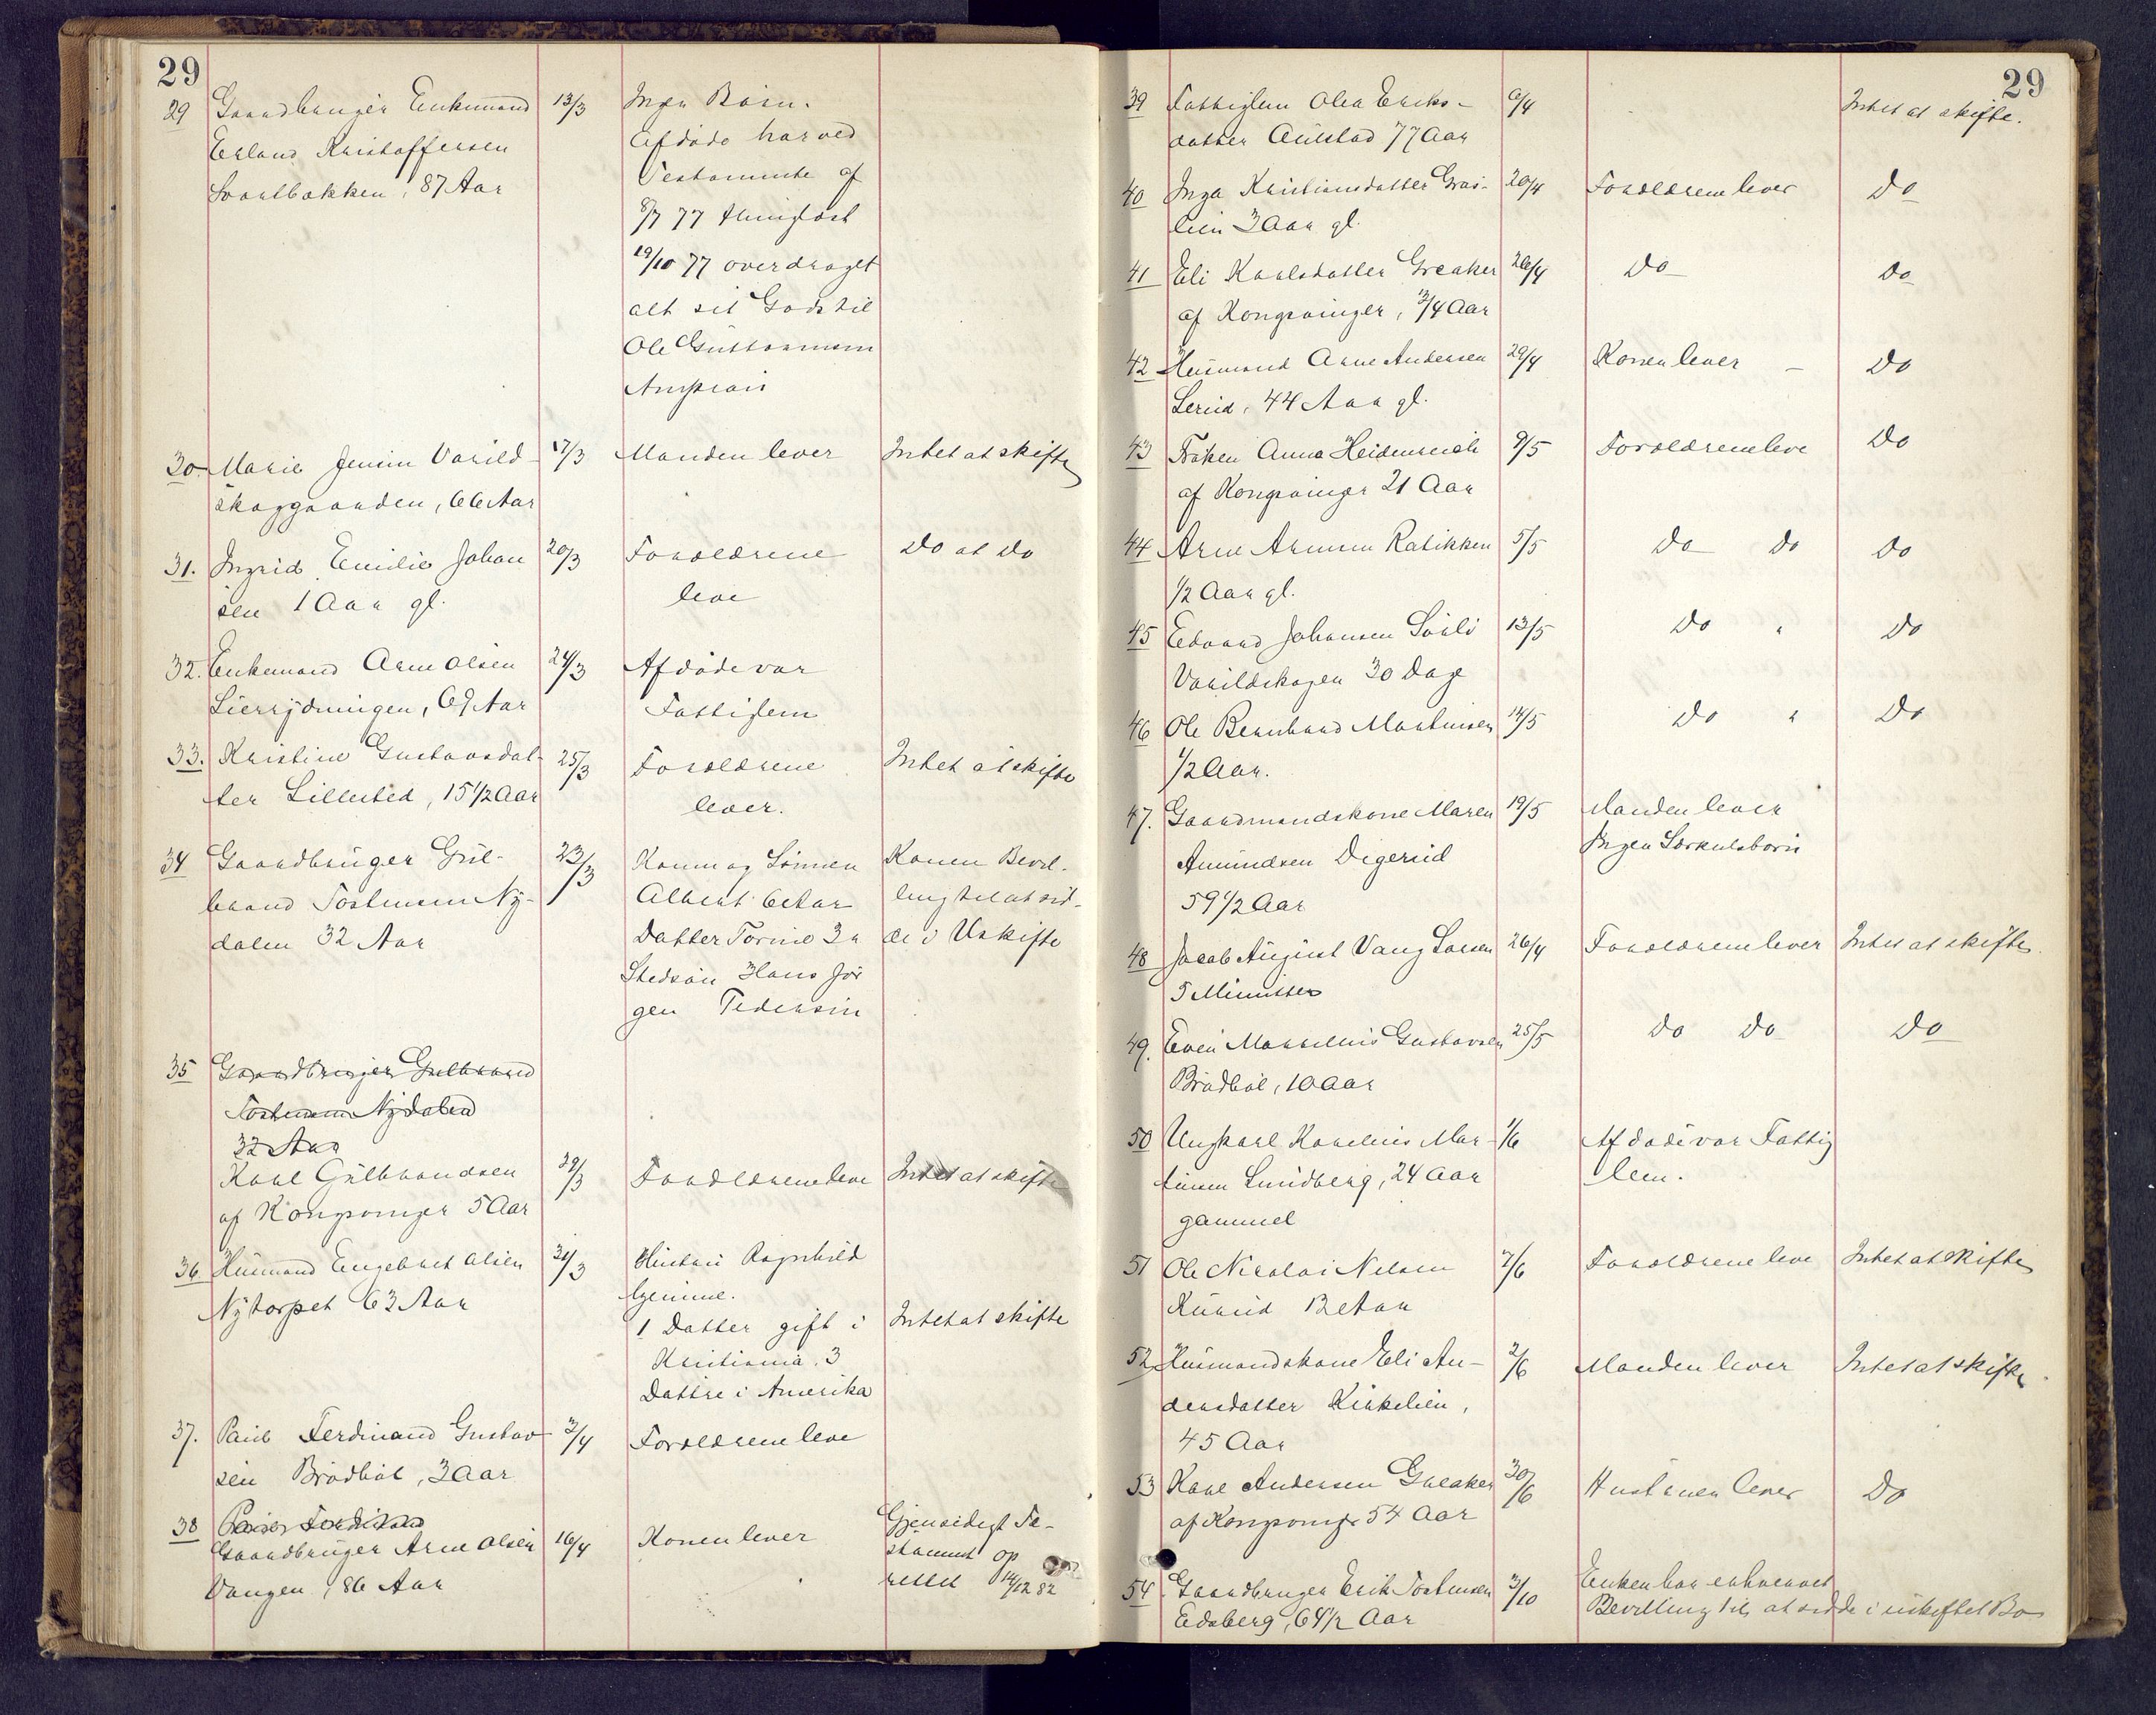 29
29 Gaardbruger Enkemand 13/3 Ingen Børn.
Erland Kristoffersen Afdøde har ved
Svartbakken, 87 Aar Testamente af
8/7 77 thinglæst
19/10 77 overdraget
alt sit Gods til
Ole Guttormsen
30 Marie Jensen Varild- 17/3 Manden lever Intet at skifte
skoggaarden, 66 Aar
31. Ingrid Emilie Johan 20/3 Forældrene Do at Do
sen 1 Aar gl. leve
32. Enkemand Arne Olsen 24/3 Afdøde var
Lierrydningen, 69 Aar Fattiglem
33. Kristine Gustavsdat- 25/3 Forældrene Intet at skifte
ter Lillested, 15 1/2 Aar lever.
34 Gaardbruger Gul- 23/3 Konen og Sønnen Konen Bevil-
brand Tostensen Ny- Albert 6 Aar ling til at sid-
dalen 32 Aar Datter Torine 3 " de i Uskifte
Stedsøn Hans Jør
gen Pedersen
35 Gaardbruger Gulbrand
Tostensen Nydalen
32 Aar
Karl Gulbrandsen 29/3 Forældrene leve Intet at skifte
af Kongsvinger 5 Aar
36. Husmand Engebret Olsen 31/3 Hustru Ragnhild
Nytorpet 63 Aar hjemme.
1 Datter gift i Intet at skifte
Kristiania. 3
Døttre i Amerika
37. Paul Ferdinand Gustav- 2/4 Forældrene leve
sen Brødbøl, 3 Aar
38 Paul Ferdinand
Gaardbruger Arne Olsen 16/4 Konen lever Gjensidigt Te-
Vangen, 86 Aar stament op
rettet 14/12 82
29
39 Fattiglem Olea Eriks- 6/4 Intet at skifte.
datter Aulstad 77 Aar
40 Inga Kristiansdatter Gras- 20/4 Forældrene lever Do
lien 3 Aar gl.
41 Eli Karlsdatter Greaker 26/4 Do Do
af Kongsvinger, 3/4 Aar
42 Husmand Arne Andersen 29/4 Konen lever – Do
Lerud, 44 Aar gl.
43 Frøken Anna Heidenreich 9/5 Forældrene leve Do
af Kongsvinger 21 Aar
44 Arne Arnesen Ratikken 5/5 Do Do Do
1/2 Aar gl.
45 Edvard Johansen Sørli 13/5 Do " Do
Varildskogen 30 Dage
46 Ole Bernhard Martinsen 14/5 Do " Do
1/2 Aar.
47. Gaardmandskone Maren 19/5 Manden lever
Amundsen Digerud Ingen Særkulsbørn
59 1/2 Aar
48 Jacob August Vang Larsen 26/4 Forældrene lever Intet at skifte
5 Minutter
49. Even Marselius Gustavsen 25/5 Do Do Do
Brødbøl, 10 Aar
50 Ungkarl Karelius Mar- 1/6 Afdøde var Fattig
tinsen Lundberg, 24 Aar lem.
gammel
51 Ole Nicolai Nelsen 7/6 Forældrene leve Intet at skifte
Rustad
52 Husmandskone Eli An- 2/6 Manden lever Intet at skifte
dersdatter Kirkelien,
45 Aar
53 Karl Andersen Greaker 30/6 Hustruen lever Do
af Kongsvinger 54 Aar
54 Gaardbruger Erik Tostensen 3/10 Enken har erhvervet
Edsberg, 64 1/2 Aar Bevilling til at sidde i uskiftet Bo